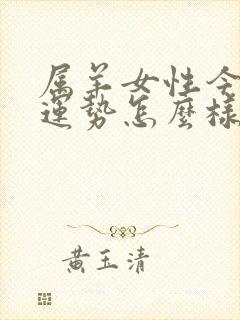 属羊女性今
運勢怎麼樣
黃玉清